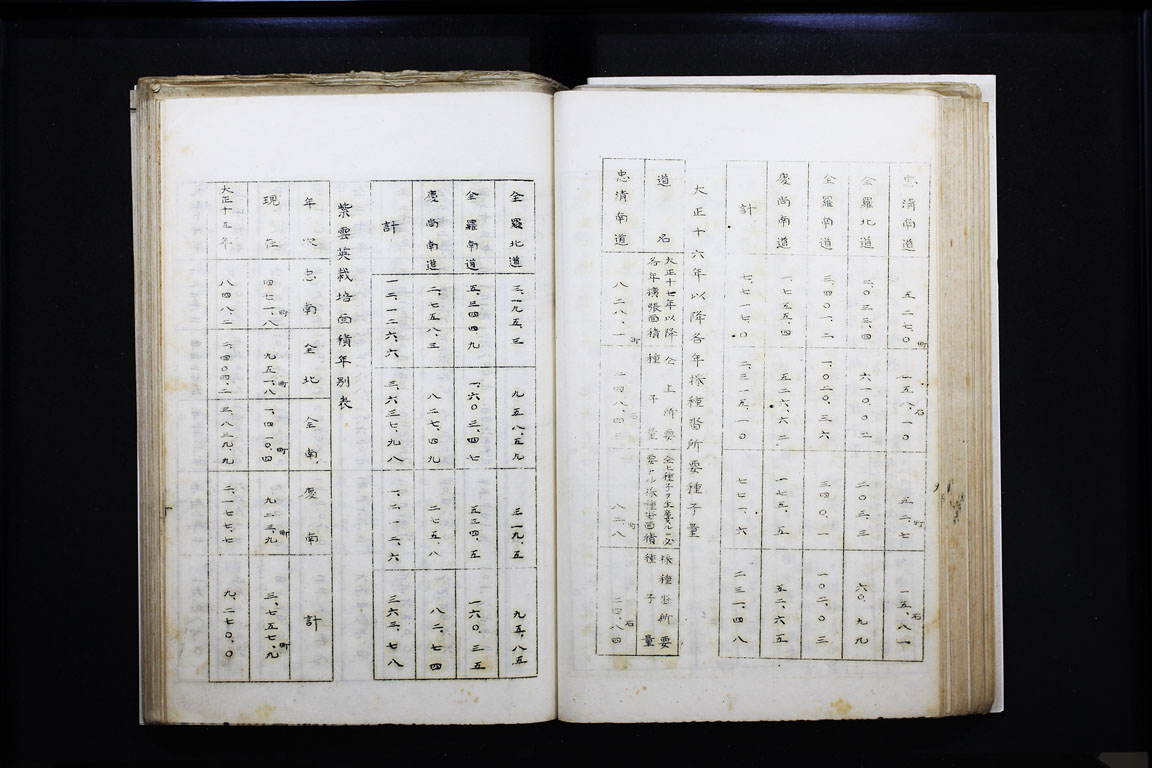 忠清南道 五二七、〇町 一五八、一〇石 五二、七町 一五、八一石
全羅北道 二、〇三三、四 六一〇、〇二 二〇三、三 六〇、九九
全羅南道 三、四〇一、二 一、〇二〇、三六 三四〇、一 一〇二、〇三
慶尚南道 一、七五五、四 五二六、六二 一七五、五 五二、六五
計 七、七一七、〇 二、三一五、一〇 七七一、六 二三一、四八
大正十六年以降各年採種畓所要種子量
道名 大正十七年以降各年擴張面積 仝上所要種子量 仝上種子ヲ生産スルニ必要ナル採種畓面積 採種畓所要種子量
忠清南道 八二八、一町 二四八、四三石 八二、八町 二四、八四石
全羅北道 三、一九五、三 九五八、五九 三一九、五 九五、八五
全羅南道 五、三四四、九 一、六〇三、四七 五三四、五 一六〇、三五
慶尚南道 二、七五八、三 八二七、四九 二七五、八 八二、七四
計 一二、一二六、六 三、六三七、九八 一、二一二、六 三六三、七八
紫雲英栽培面積年別表
年次 忠南 全北 全南 慶南 計
現在 四七一、八町 九五一、八町 一、四一〇、四町 九二三、九町 三、七五七、九町
大正十五年 八四八、二 二四〇四、二 三、八三九、九 二、一七七、七 九、二七〇、〇